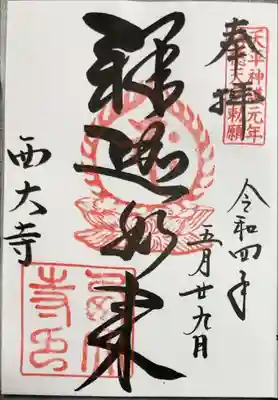 奉拝
天平神護元年
称徳天皇勅願
令和四年
五月廿九日
釋迦如来
西大寺